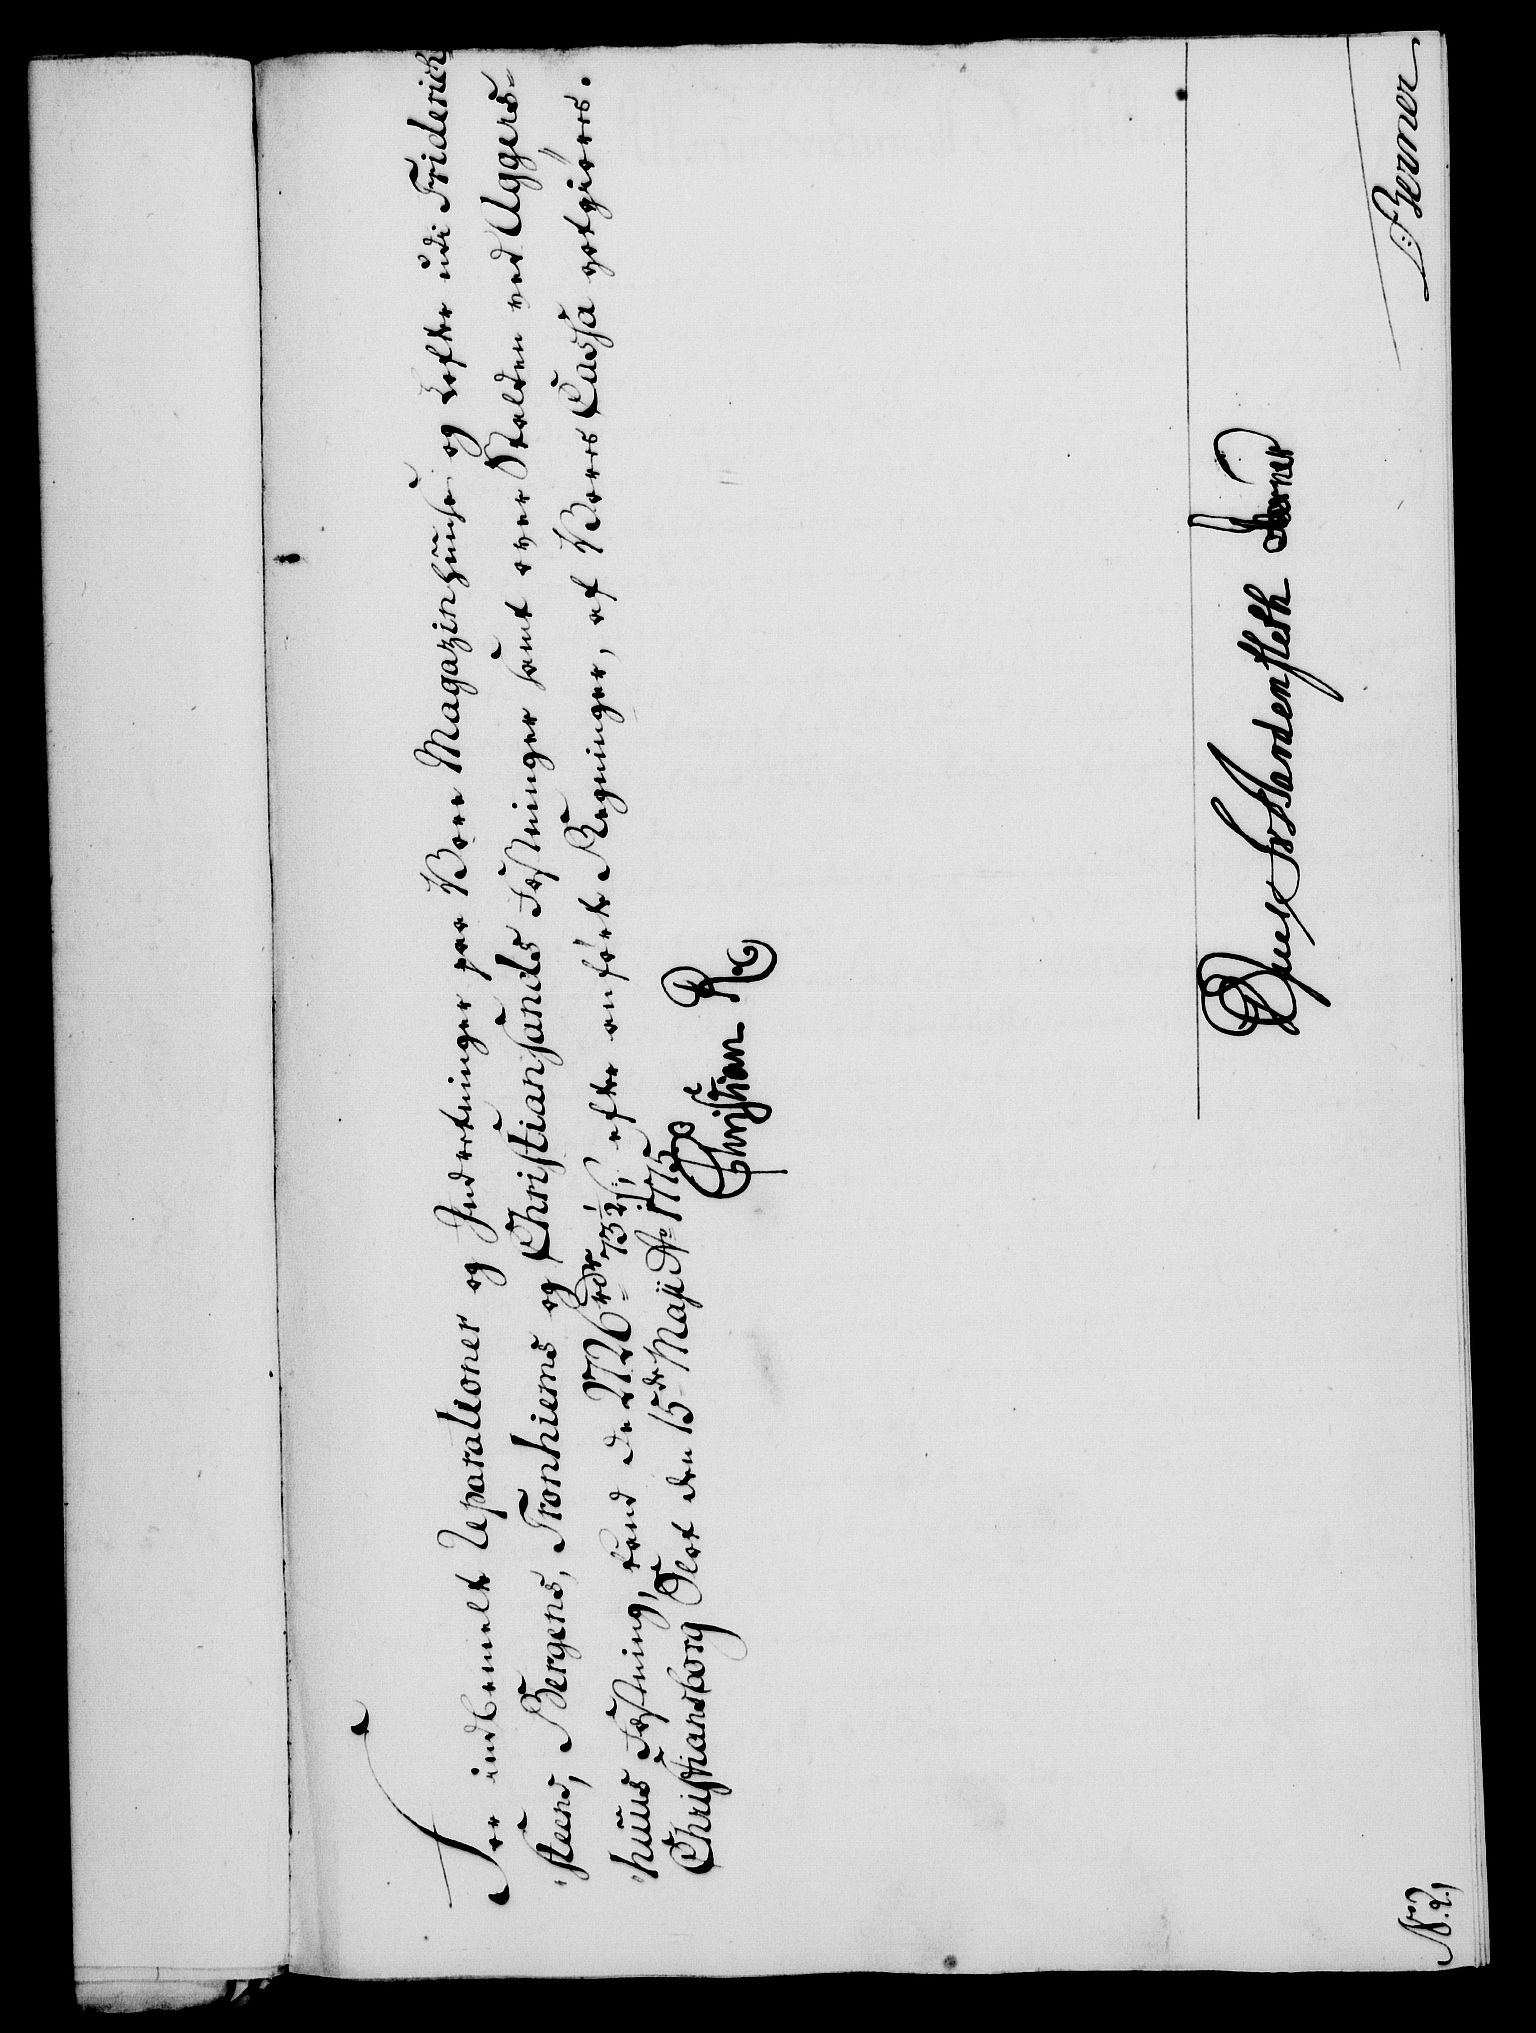 For indbemelte Reparationer og Indretninger paa Vore Magazinhuuse og Lofter udi Friderich-
"steens, Bergens, Tronhiems og Christiansands Fæstninger samt over Stalden ved Aggers-
"huus Fæstning, kand de 2726 rdr 73½ s, efter anførte Regninger, af Vores Cassa godgiøres.
Christiansborg Slot den 15de Maji Ao 1775.
Christian R
Berner
Berner
No. 2.